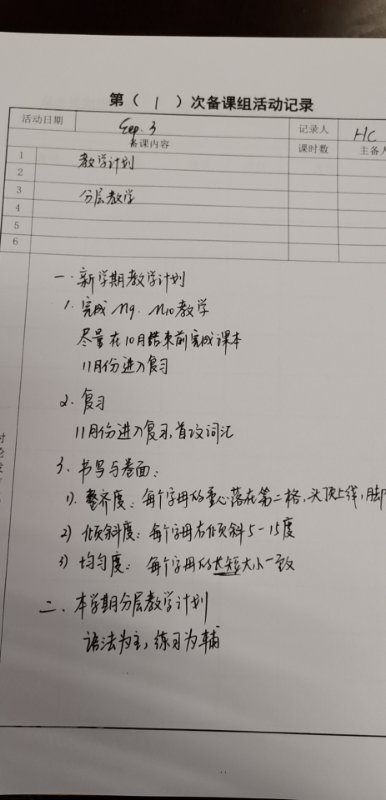 第（ 1 ）次备课组活动记录
活动日期 Sep. 3 记录人 HC
备课内容 课时数 主备人
1 教学计划
2
3 分层教学
4
5
6
一. 新学期教学计划
1. 完成 M9. M10教学
尽量在10月结束前完成课本
11月份进入复习
2. 复习
11月份进入复习, 首攻词汇
3. 书写与卷面:
1). 整齐度: 每个字母的重心落在第二格, 头顶上线, 脚
2) 倾斜度: 每个字母右倾斜5-15度
3) 均匀度: 每个字母的长短大小一致
二. 本学期分层教学计划
语法为主, 练习为辅